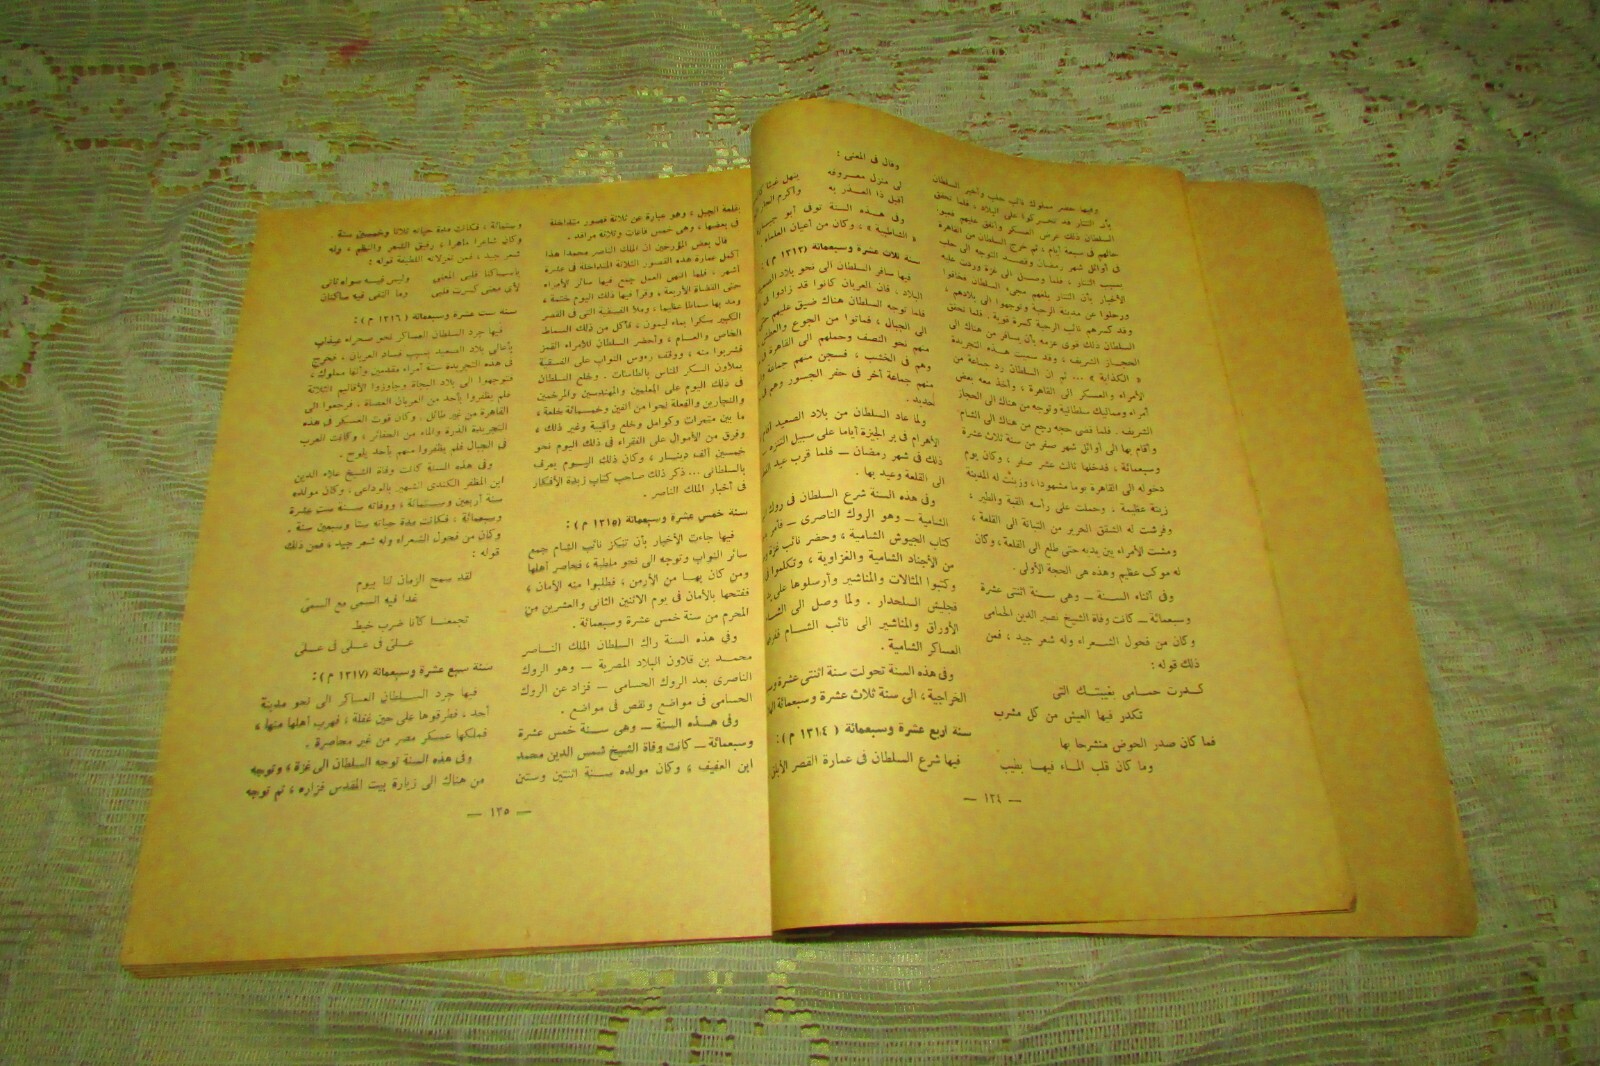 وفيها حضر مملوك نائب حلب وأخبر السلطان
بأن التتار قد تحركوا على البلاد ، فلما تحقق
السلطان ذلك عرض العسكر وأنفق عليهم
حالهم فى سبعة أيام ، ثم خرج السلطان من القاهرة
فى أوائل شهر رمضان وقصد التوجه الى حلب
بسبب التتار ، فلما وصل الى غزة وردت عليه
الأخبار بأن التتار بلغهم مجىء السلطان فخافوا
ورحلوا عن مدينة الرحبة وتوجهوا الى بلادهم ،
وقد كسرهم نائب الرحبة كسرة قوية . فلما تحقق
السلطان ذلك قوى عزمه بأن يسافر من هناك الى
الحجاز الشريف ، وقد سميت هذه التجريدة
« الكذابة » ... ثم ان السلطان رد جماعة من
الأمراء والعسكر الى القاهرة ، وأخذ معه بعض
أمراء ومماليك سلطانية وتوجه من هناك الى الحجاز
الشريف . فلما قضى حجه رجع من هناك الى الشام
وأقام بها الى أوائل شهر صفر من سنة ثلاث عشرة
وسبعمائة ، فدخلها ثالث عشر صفر ، وكان يوم
دخوله الى القاهرة يوما مشهودا ، وزينت له المدينة
زينة عظيمة . وحملت على رأسه القبة والطير ،
وفرشت له الشقق الحرير من التبانة الى القلعة ،
ومشت الأمراء بين يديه حتى طلع الى القلعة ، وكان
له موكب عظيم وهذه هى الحجة الأولى .
وفى أثناء السنة ــ وهى سنة اثنتى عشرة
وسبعمائة ــ كانت وفاة الشيخ نصير الدين الحمامى
وكان من فحول الشعراء وله شعر جيد ، فمن
ذلك قوله :
كدرت حمامى بغيبتك التى
تكدر فيها العيش من كل مشرب
فما كان صدر الحوض منشرحا بها
وما كان قلب الماء فيها بطيب
وقال فى المعنى :
لى منزل معروفه ينهل غيثا
أقبل ذا العذر به وأكرم الجار
وفى هذه السنة توفى أبو
« الشاطبية » ، وكان من أعيان العلماء
سنة ثلاث عشرة وسبعمائة (١٣١٣ م) :
فيها سافر السلطان الى نحو بلاد
البلاد ، فان العربان كانوا قد زادوا
فلما توجه السلطان هناك ضيق عليهم
الى الجبال ، فماتوا من الجوع والعطش
منهم نحو النصف وحملهم الى القاهرة
وهم فى الخشب ، فسجن منهم جماعة
منهم جماعة أخر فى حفر الجسور وهم فى
حديد .
ولما عاد السلطان من بلاد الصعيد
الأهرام فى بر الجيزة أياما على سبيل التنزه
ذلك فى شهر رمضان ــ فلما قرب عيد
الى القلعة وعيد بها .
وفى هذه السنة شرع السلطان فى روك
الشامية ــ وهو الروك الناصرى ــ
كتاب الجيوش الشامية ، وحضر نائب غزة
من الأجناد الشامية والغزاوية ، وتكلموا
وكتبوا المثالات والمناشير وأرسلوها على يد
قجليش السلحدار . ولما وصل الى
الأوراق والمناشير الى نائب الشام
العساكر الشامية .
وفى هذه السنة تحولت سنة اثنتى عشرة
الخراجية ، الى سنة ثلاث عشرة وسبعمائة
سنة أربع عشرة وسبعمائة ( ١٣١٤ م ) :
فيها شرع السلطان فى عمارة القصر
ــ ١٣٤ ــ
بقلعة الجبل ، وهو عبارة عن ثلاثة قصور متداخلة
فى بعضها ، وهى خمس قاعات وثلاثة مراقد .
قال بعض المؤرخين ان الملك الناصر محمدا هذا
أكمل عمارة هذه القصور الثلاثة المتداخلة فى عشرة
أشهر ، فلما انتهى العمل جمع فيها سائر الأمراء
حتى القضاة الأربعة ، وقرأ فيها ذلك اليوم ختمة ،
ومد بها سماطا عظيما ، وملأ الفسقية التى فى القصر
الكبير سكرا بماء ليمون ، فأكل من ذلك السماط
الخاص والعام ، وأحضر السلطان للأمراء القمز
فشربوا منه ، ووقف رءوس النواب على الفسقية
يملأون السكر للناس بالطاسات . وخلع السلطان
فى ذلك اليوم على المعلمين والمهندسين والمرخمين
والنجارين والفعلة نحوا من ألفين وخمسمائة خلعة ،
ما بين متمرات وكوامل وخلع وأقبية وغير ذلك ،
وفرق من الأموال على الفقراء فى ذلك اليوم نحو
خمسين ألف دينار ، وكان ذلك اليوم يعرف
بالسلطانى ... ذكر ذلك صاحب كتاب زبدة الأفكار
فى أخبار الملك الناصر .
سنة خمس عشرة وسبعمائة (١٣١٥ م) :
فيها جاءت الأخبار بأن تنكز نائب الشام جمع
سائر النواب وتوجه الى نحو ملطية ، فحاصر أهلها
ومن كان بها من الأرمن ، فطلبوا منه الأمان ،
ففتحها بالأمان فى يوم الاثنين الثانى والعشرين من
المحرم من سنة خمس عشرة وسبعمائة .
وفى هذه السنة راك السلطان الملك الناصر
محمد بن قلاون البلاد المصرية ــ وهو الروك
الناصرى بعد الروك الحسامى ــ فزاد عن الروك
الحسامى فى مواضع ونقص فى مواضع .
وفى هذه السنة ــ وهى سنة خمس عشرة
وسبعمائة ــ كانت وفاة الشيخ شمس الدين محمد
ابن العفيف ، وكان مولده سنة اثنتين وستين
وستمائة ، فكانت مدة حياته ثلاثا وخمسين سنة
وكان شاعرا ماهرا ، رقيق الشعر والنظم ، وله
شعر جيد ، فمن تغزلاته اللطيفة قوله :
يا ساكنا قلبى المعنى وليس فيه سواه ثانى
لأى معنى كسرت قلبى وما التقى فيه ساكنان
سنة ست عشرة وسبعمائة ( ١٣١٦ م ) :
فيها جرد السلطان العساكر نحو صحراء عيذاب
بأعالى بلاد الصعيد بسبب فساد العربان ، فخرج
فى هذه التجريدة ستة أمراء مقدمين وألفا مملوك ،
فتوجهوا الى بلاد البجاة وجاوزوا الأقاليم الثلاثة
فلم يظفروا بأحد من العربان العصاة . فرجعوا الى
القاهرة من غير طائل . وكان قوت العسكر فى هذه
التجريدة الذرة والماء من الحفائر ، وكانت العرب
فى الجبال فلم يظفروا منهم بأحد يلوح .
وفى هذه السنة كانت وفاة الشيخ علاء الدين
ابن المظفر الكندى الشهير بالوداعى ، وكان مولده
سنة أربعين وستمائة ، ووفاته سنة ست عشرة
وسبعمائة ، فكانت مدة حياته ستا وسبعين سنة .
وكان من فحول الشعراء وله شعر جيد ، فمن ذلك
قوله :
لقد سمح الزمان لنا بيوم
غدا فيه السمى مع السمى
تجمعنا كأنا ضرب خيط
على فى على فى على
سنة سبع عشرة وسبعمائة (١٣١٧ م) :
فيها جرد السلطان العساكر الى نحو مدينة
آمد ، فطرقوها على حين غفلة ، فهرب أهلها منها ،
فملكها عسكر مصر من غير محاصرة .
وفى هذه السنة توجه السلطان الى غزة ، وتوجه
من هناك الى زيارة بيت المقدس فزاره ، ثم توجه
ــ ١٣٥ ــ